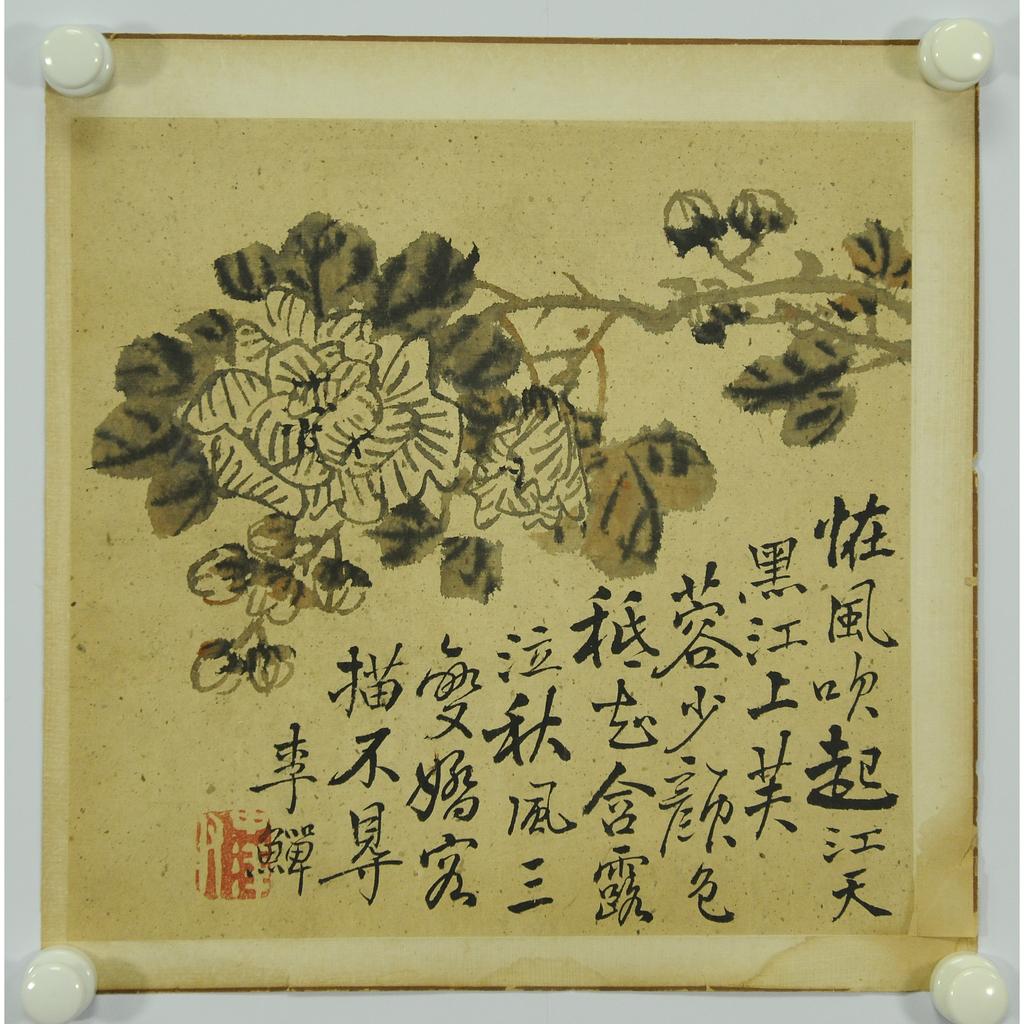 怪風吹起江天
黑江上芙
蓉少顏色
秪
含露
泣秋風三
變嬌容
描不
李鱓